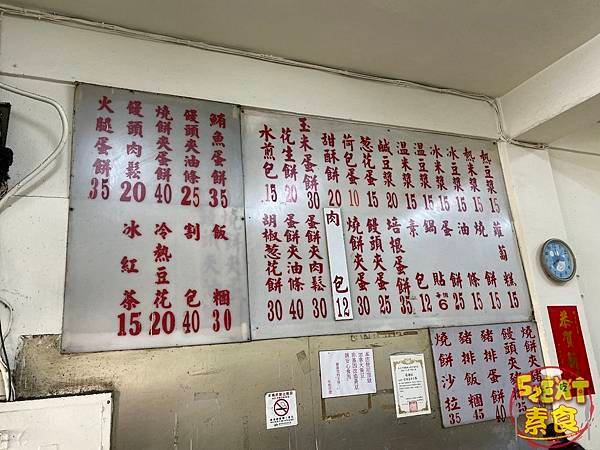 熱豆漿 15
熱米漿 15
冰豆漿 15
冰米漿 15
温豆漿 15
温米漿 15
鹹豆漿 20
葱花蛋 15
荷包蛋 10
甜酥餅 20
玉米蛋餅 30
花生餅 20
水煎包 .15
蘿蔔糕 15
燒餅 15
油條 15
蛋餅 25
鍋貼
素包 12
培根蛋餅 35
饅頭夾蛋 25
燒餅夾蛋 30
肉包 12
蛋餅夾肉鬆 30
蛋餅夾油條 40
胡椒葱花餅 30
鮪魚蛋餅 35
饅頭夾油條 25
燒餅夾蛋餅 40
饅頭肉鬆 20
火腿蛋餅 35
飯糰 30
割包 40
冷熱豆花 20
冰紅茶 15
燒餅夾
饅頭夾豬
豬排蛋餅 40
豬排飯糰 45
燒餅沙拉 35
恭賀
52EXT
素食